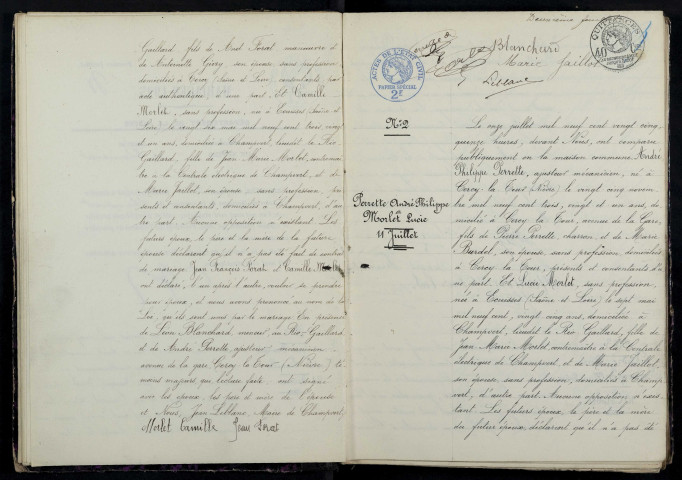 Gaillard fils de
de Antoinette Givry, son épouse sans profession
domiciliés à Cercy (Saône et Loire), consentants par
acte authentique, d'une part. Et Camille
Morlet, sans profession, née à Ecuisses (Saône et
Loire) le vingt six mai mil neuf cent trois vingt
et un ans, domiciliée à Champvert, lieudit le Rio-
Gaillard, fille de Jean Marie Morlet, contremaî-
tre à la Centrale électrique de Champvert, et de
Marie Jaillot, son épouse, sans profession, pré-
sents et consentants, domiciliés à Champvert, d'au
tre part. Aucune opposition n'existant. Les
futurs époux, le père et la mère de la future
épouse déclarent qu'il n'a pas été fait de contrat
de mariage. Jean François Forat et Camille Morlet
ont déclaré, l'un après l'autre, vouloir se prendre
pour époux, et nous avons prononcé au nom de la
Loi, qu'ils sont unis par le mariage. En présence
de Léon Blanchard, au Rio-Gaillard
et de André Perrette, ajusteur mécanicien
avenue de la gare, Cercy la Tour (Nièvre) té
moins majeurs qui, lecture faite ont signé
avec les époux, les père et mère de l'épouse
et Nous, Jean Leblanc, Maire de Champvert
Morlet Camille Jean Forat
Blanchard
Marie Jaillot
Leblanc
ACTES DE L'ETAT CIVIL
PAPIER SPECIAL
2F
N° 2
Perrette André Philippe
et
Morlet Lucie
11 Juillet
Le onze juillet mil neuf cent vingt cinq
quinze heures, devant Nous, ont comparu
publiquement en la maison commune, André
Philippe Perrette, ajusteur mécanicien, né à
Cercy la Tour (Nièvre) le vingt cinq novem
bre mil neuf cent trois, vingt et un ans, do
micilié à Cercy la Tour, avenue de la Gare,
fils de Pierre Perrette, charron, et de Marie
Burdel, son épouse, sans profession, domiciliés
à Cercy la Tour, présents et consentants d'u
ne part. Et Lucie Morlet, sans profession,
née à Ecuisses (Saône et Loire), le sept mai
mil neuf cent, vingt cinq ans, domiciliée à
Champvert, lieudit le Rio Gaillard, fille de
Jean Marie Morlet contremaître à la Centrale
électrique de Champvert, et de Marie Jaillot,
son épouse, sans profession, domiciliés à Champ
vert, d'autre part. Aucune opposition n'exis
tant. Les futurs époux, le père et la mère
du futur époux, déclarent qu'il n'a pas été